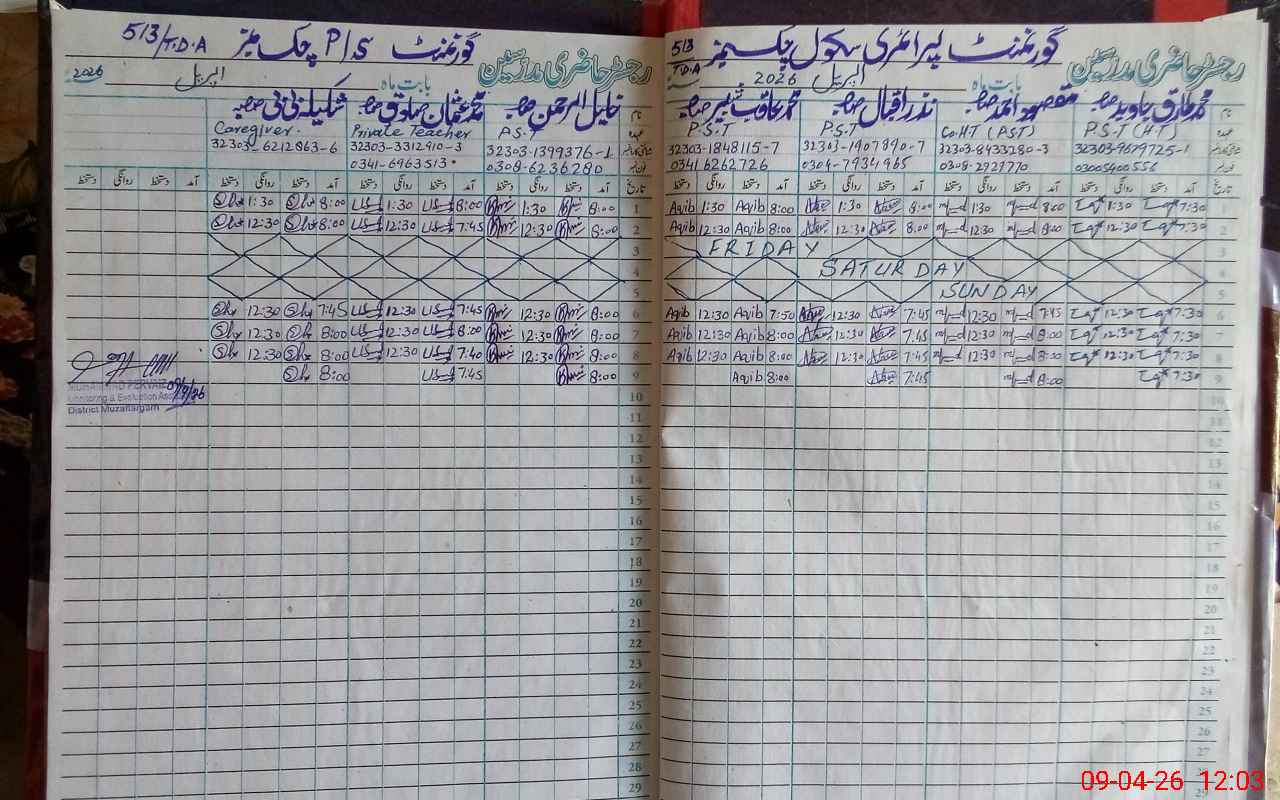 513 گورنمنٹ پرائمری سکول چک نمبر
T.D.A
رجسٹر حاضری مدرسین بابت ماہ اپریل 2026
محمد طارق جاوید صاحب مقصود احمد صاحب نذر اقبال صاحب محمد عاقب نیر صاحب نام
P.S.T (H.T) Co.HT (P.S.T) P.S.T P.S.T عہدہ
32303-9679725-1 32303-8433280-3 32303-1907890-7 32303-1848115-7
03005400556 0308-2921770 0304-7934965 0341 6262726
تاریخ آمد دستخط روانگی دستخط آمد دستخط روانگی دستخط آمد دستخط روانگی دستخط آمد دستخط روانگی دستخط
1 7:30 1:30 8:00 1:30 8:00 1:30 8:00 Aqib 1:30 Aqib
2 7:30 12:30 8:00 12:30 8:00 12:30 8:00 Aqib 12:30 Aqib
3 FRIDAY
4 SATURDAY
5 SUNDAY
6 7:30 12:30 7:45 12:30 7:45 12:30 7:50 Aqib 12:30 Aqib
7 7:30 12:30 8:00 12:30 7:45 12:30 8:00 Aqib 12:30 Aqib
8 7:30 12:30 8:00 12:30 7:45 12:30 8:00 Aqib 12:30 Aqib
9 7:30 8:00 7:45 8:00 Aqib
10
11
12
13
14
15
16
17
18
19
20
21
22
23
24
25
26
27
28
29
گورنمنٹ P/S چک نمبر 513/T.D.A
رجسٹر حاضری مدرسین بابت ماہ اپریل 2026
خلیل الرحمن صاحب محمد عثمان صادق صاحب شکیلہ بی بی صاحبہ نام
P.S.T Private Teacher Caregiver. عہدہ
32303-1399376-1 32303-3312910-3 32303-6212863-6
0308-6236280 0341-6963513
تاریخ آمد دستخط روانگی دستخط آمد دستخط روانگی دستخط آمد دستخط روانگی دستخط دستخط روانگی دستخط
1 8:00 1:30 8:00 1:30 8:00 1:30
2 8:00 12:30 7:45 12:30 8:00 12:30
3
4
5
6 8:00 12:30 7:45 12:30 7:45 12:30
7 8:00 12:30 8:00 12:30 8:00 12:30
8 8:00 12:30 7:40 12:30 8:00 12:30
9 8:00 7:45 8:00
10
11
12
13
14
15
16
17
18
19
20
21
22
23
24
25
26
27
28
29
MUHAMMAD PERVAIZ
Monitoring & Evaluation
District Muzaffargarh
09-04-26 12:03